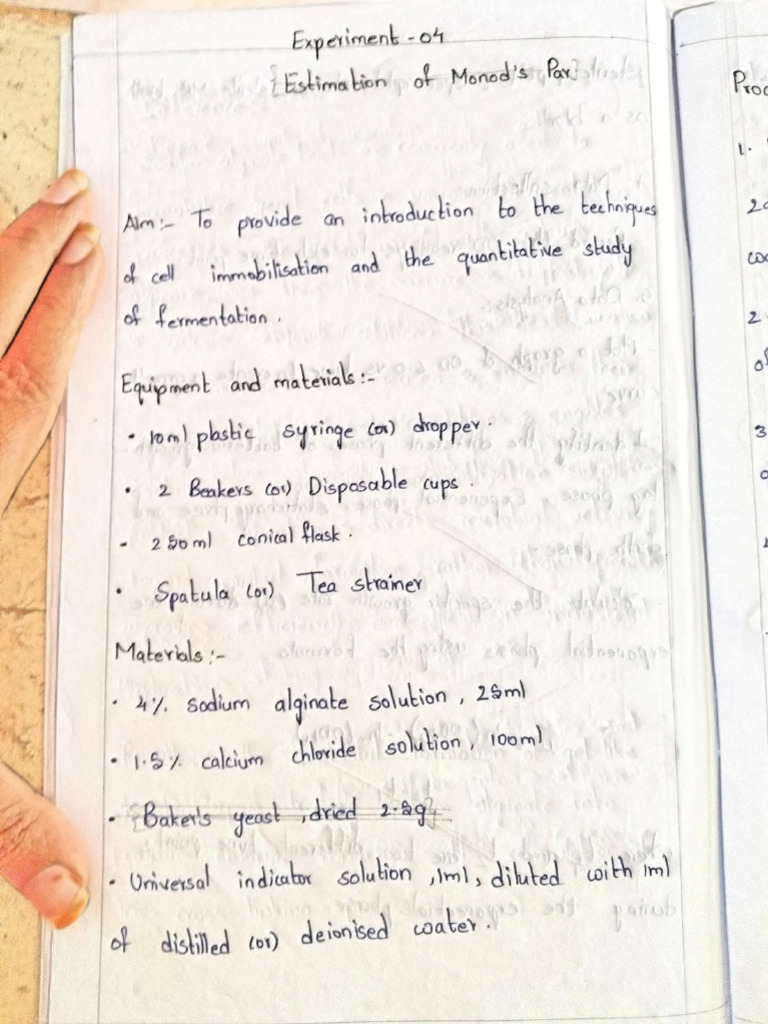 Experiment - 04
Estimation of Monod's Par
Aim :- To provide an introduction to the techniques
of cell immobilisation and the quantitative study
of fermentation.
Equipment and materials :-
• 10ml plastic syringe (or) dropper.
• 2 Beakers (or) Disposable cups.
- 250ml conical flask.
• Spatula (or) Tea strainer
Materials :-
• 4% sodium alginate solution, 25ml
• 1.5% calcium chloride solution, 100ml
• Baker's yeast, dried 2.5g
• Universal indicator solution, 1ml, diluted with 1ml
of distilled (or) deionised water.
Proc
1.
2
2
of
3